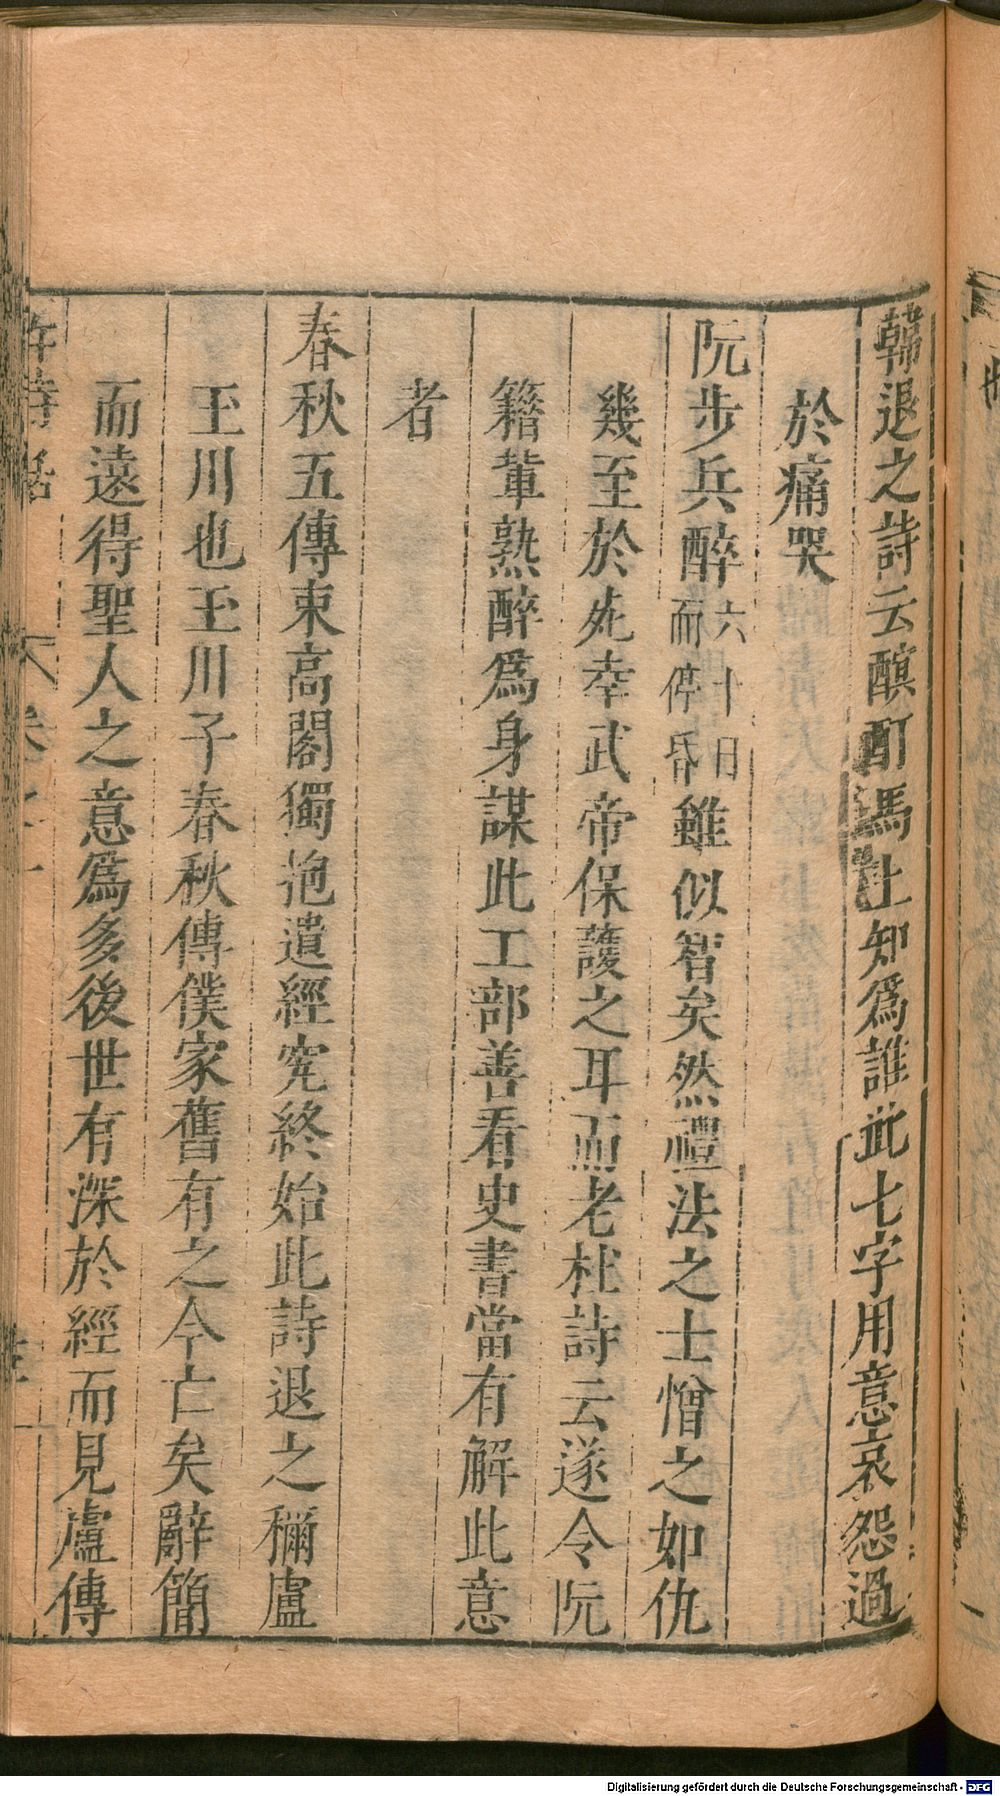 韓退之詩云酩酊馬上知爲誰此七字用意哀怨過
於痛哭
阮步兵醉六十日而停昏雖似智矣然禮法之士憎之如仇
幾至於死幸武帝保護之耳而老杜詩云遂令阮
籍輩熟醉爲身謀此工部善看史書當有解此意
者
春秋五傳束高閣獨抱遺經究終始此詩退之稱盧
玉川也玉川子春秋傳僕家舊有之今亡矣辭簡
而遠得聖人之意爲多後世有深於經而見盧傳
許詩話
卷之一
Digitalisierung gefördert durch die Deutsche Forschungsgemeinschaft - DFG